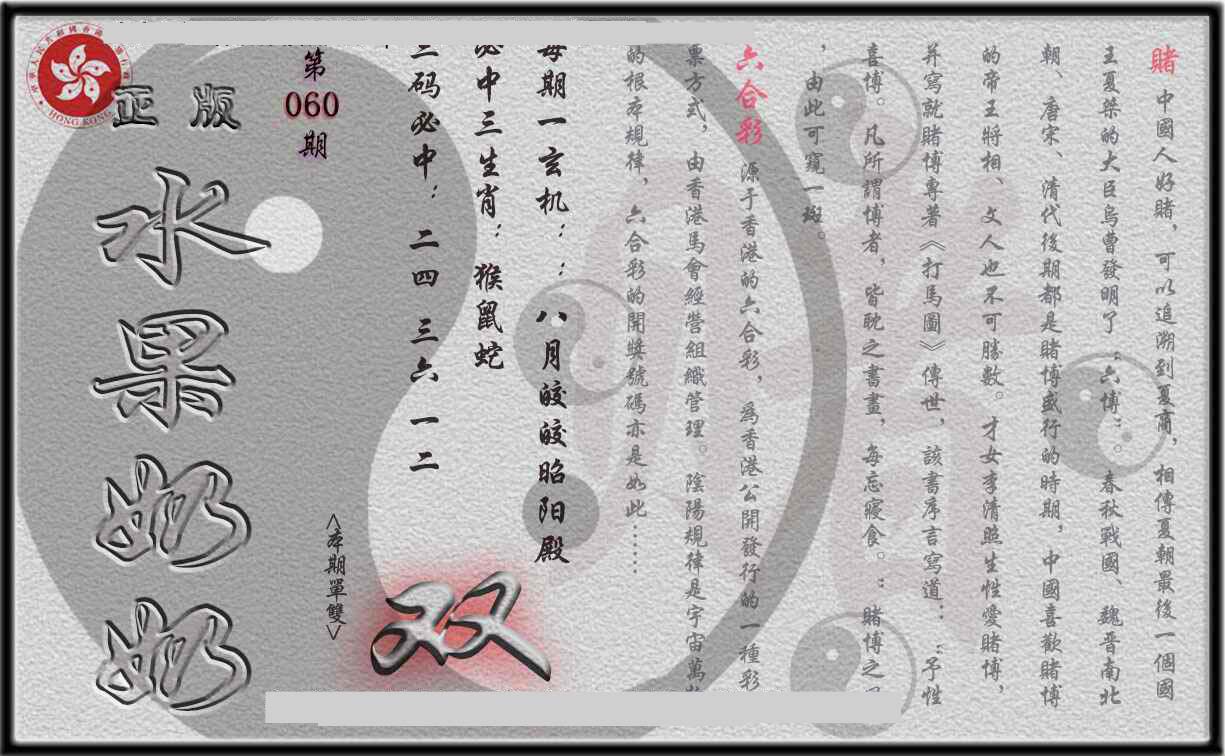 賭 中國人好賭，可以追溯到夏商，相傳夏朝最後一個國
王夏桀的大臣烏曹發明了“六博”。春秋戰國、魏晋南北
朝、唐宋、清代後期都是賭博盛行的時期，中國喜歡賭博
的帝王將相、文人也不可勝數。才女李清照生性愛賭博，
并寫就賭博專著《打馬圖》傳世，該書序言寫道：“予性
喜博。凡所謂博者，皆耽之書畫，每忘寢食。”賭博之
，由此可窺一斑。
六合彩 源于香港的六合彩，爲香港公開發行的一種彩
票方式，由香港馬會經營組織管理。陰陽規律是宇宙萬
的根本規律，六合彩的開獎號碼亦是如此……
每期一玄机：：八月皎皎昭阳殿
必中三生肖：猴鼠蛇
三码必中：二四 三六 一二
第
060
期
<本期單雙>
双
正版
水果奶奶
HONG KONG